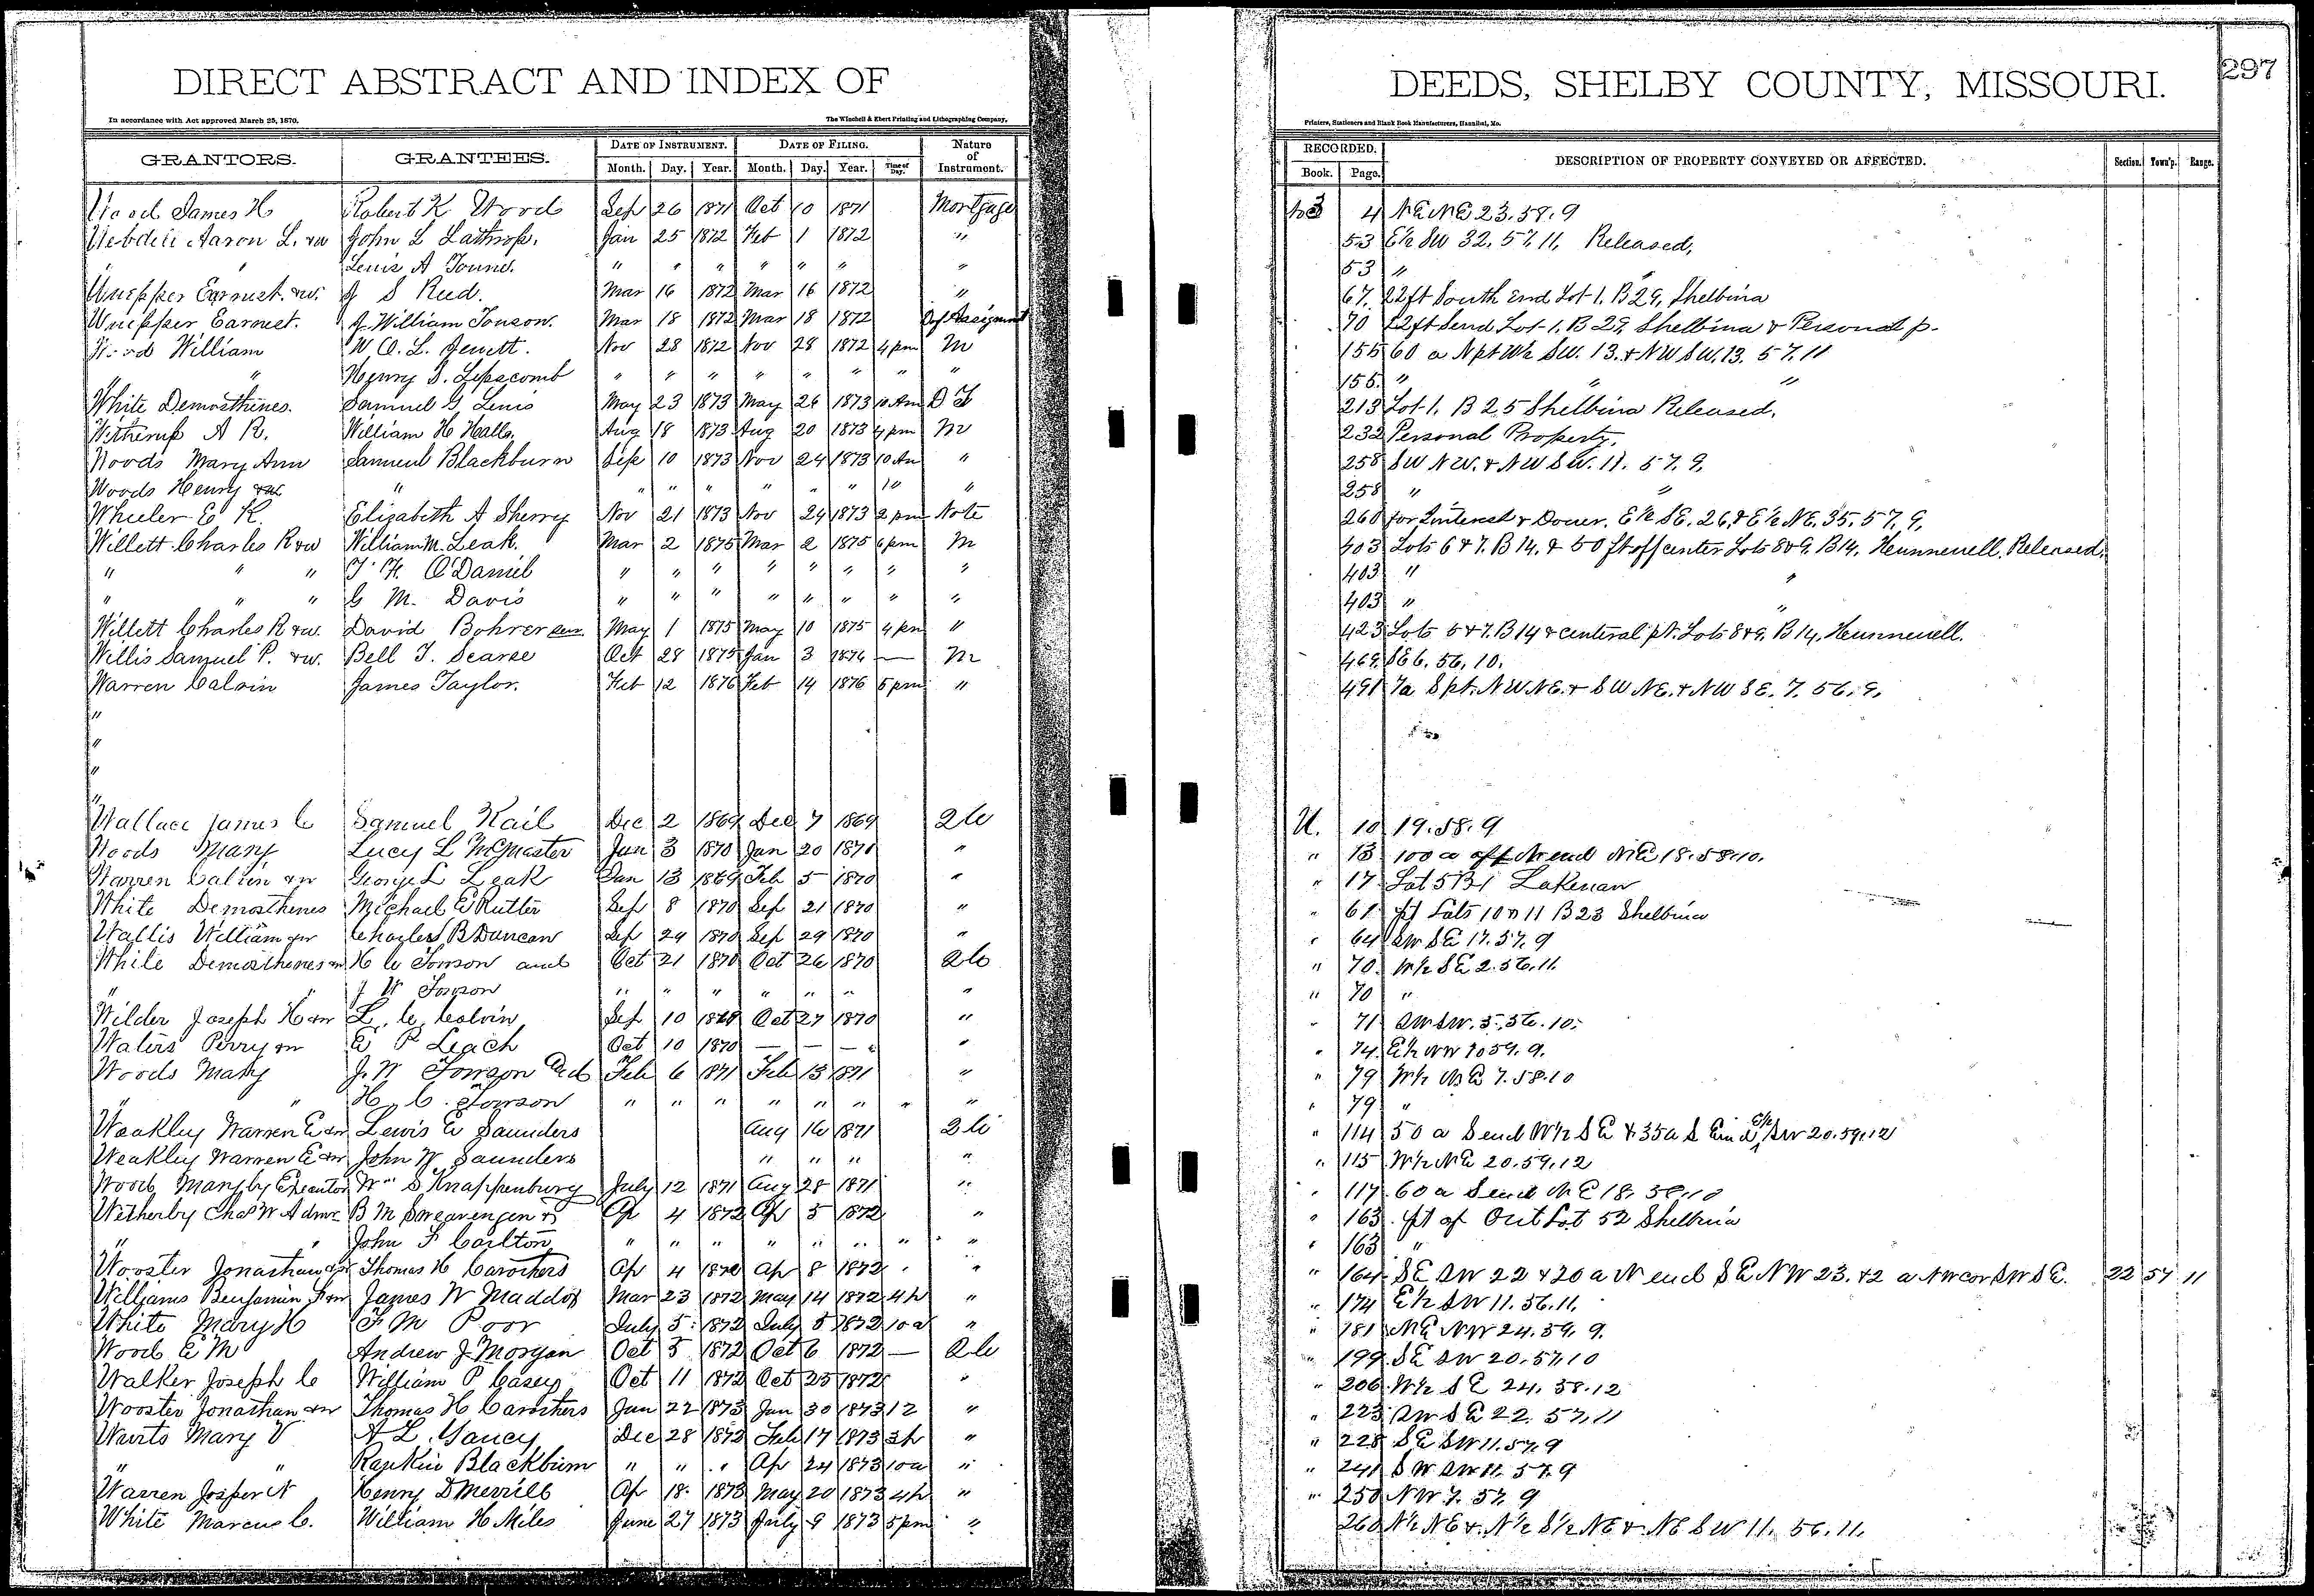 297
DIRECT ABSTRACT AND INDEX OF DEEDS, SHELBY COUNTY, MISSOURI.
In accordance with Act approved March 25, 1870. The Winchell & Ebert Printing and Lithographing Company, Printers, Stationers and Blank Book Manufacturers, Hannibal, Mo.
GRANTORS. GRANTEES. DATE OF INSTRUMENT. DATE OF FILING. Nature of Instrument. RECORDED. DESCRIPTION OF PROPERTY CONVEYED OR AFFECTED. Section. Town'p. Range.
Month. Day. Year. Month. Day. Year. Time of Day. Book. Page.
Wood James H Robert K Wood Sep 26 1871 Oct 10 1871 Mortgage 4 NE NE 23. 58. 9
Aaron L. &w John L Lathrop. Jan 25 1872 Feb 1 1872 " 53 E½ SW 32. 57. 11, Released,
" " Lewis A " " " " " " " 53 "
Earnest. &w. J S Reed. Mar 16 1872 Mar 16 1872 " 67. 22ft South End Lot 1. B 29, Shelbina
Earnest. J. William Towson. Mar 18 1872 Mar 18 1872 70 22ft S end Lot 1. B 29, Shelbina & Personal p.
Wood William W O. L. Jewett. Nov 28 1872 Nov 28 1872 4 pm M 155 60 a N pt W½ SW. 13. & NW SW. 13. 57. 11
" " Henry S. Lipscomb " " " " " " " " 155. " " "
White Demosthines. Samuel G Lewis May 23 1873 May 26 1873 10 Am D T 213 Lot 1. B 25 Shelbina Released.
Witherup A R. William H Halls. Aug 18 1873 Aug 20 1873 4 pm M 232 Personal Property.
Woods Mary Ann Samuel Blackburn Sep 10 1873 Nov 24 1873 10 Am " 258 SW NW. & NW SW. 11. 57. 9.
Woods Henry &w " " " " " " " 10 " 258 " "
Wheeler E K. Elizabeth A Sherry Nov 21 1873 Nov 24 1873 2 pm Note 260 for Interest & Dower. E½ SE. 26, & E½ NE. 35. 57. 9.
Willett Charles R &w William M. Leak. Mar 2 1875 Mar 2 1875 6 pm M 403 Lots 6 & 7. B 14. & 50 ft off center Lots 8 & 9. B 14. Hunnewell. Released,
" " " T. H. O'Daniel " " " " " " " " 403 " "
" " " G M. Davis " " " " " " " " 403 " "
Willett Charles R &w. David Bohrer Senr. May 1 1875 May 10 1875 4 pm " 423 Lots 5 & 7. B 14 & centeral pt. Lots 8 & 9. B 14. Hunnewell.
Willis Samuel P. &w. Bell T. Searse Oct 28 1875 Jan 3 1876 — M 469. SE 6. 56. 10.
Warren Calvin James Taylor. Feb 12 1876 Feb 14 1876 5 pm " 491 7a S pt. NW NE. & SW NE. & NW SE. 7. 56. 9.
"
"
"
"
Wallace James C Samuel Kail Dec 2 1869 Dec 7 1869 U. 10 19. 58. 9
Woods Mary Lucy L McMaster Jan 3 1870 Jan 20 1870 " " 13 100 a off N end NE 18. 58. 10.
Warren Calvin &w George L Leak Jan 13 1869 Feb 5 1870 " " 17 Lot 5 B 1 Lakenan
White Demosthenes Michael E Rutter Sep 8 1870 Sep 21 1870 " " 61 pt Lots 10 & 11 B 23 Shelbina
Wallis William &w Charles B Duncan Sep 29 1870 Sep 29 1870 " " 64 SW SE 17. 57. 9
White Demosthenes &w H C Towson and Oct 21 1870 Oct 26 1870 " 70. W½ SE 2. 56. 11.
" " J W Towson " " " " " " " " 70 "
Wilder Joseph H &w L. C. Colvin Sep 10 Oct 27 1870 " " 71 SW SW. 5. 56. 10.
Waters Perry &w E P Leach Oct 10 1870 — — — " " 74. E½ NW 10 59. 9.
Woods Mary J. W Towson Feb 6 1871 Feb 13 1871 " " 79 W½ NE 7. 58. 10
" " H. C. Towson " " " " " " " " " 79 "
Weakley Warren E &w Lewis E Saunders Aug 16 1871 " 114 50 a S end W½ SE & 35a S End E½ SW 20. 59. 12
Weakley Warren E &w John W Saunders " " " " " 115 W½ NE 20. 59. 12
Wood Mary by Executor Wm S Knappenburg July 12 1871 Aug 28 1871 " " 117 60 a S end NE 18. 58. 10
Witherby Chas W Admr B M Swearengen & Ap 4 1872 Ap 5 1872 " " 163. pt of Out Lot 52 Shelbina
" " John F Carlton " " " " " " " " " 163 "
Wooster Jonathan &w Thomas H Carothers Ap 4 1872 Ap 8 1872 " " " 164 SE SW 22 & 20 a N end SE NW 23. & 2 a NW cor SW SE. 22 57 11
Williams Benjamin F &w James W Maddox Mar 23 1872 May 14 1872 4 h " " 174 E½ SW 11. 56. 11.
White Mary H F M Poor July 5 1872 July 5 1872 10 a " " 181 NE NW 24. 59. 9.
Wood E M Andrew J Morgan Oct 5 1872 Oct 6 1872 — " 199. SE SW 20. 57. 10
Walker Joseph C William P Casey Oct 11 1872 Oct 23 1872 " " 206. W½ SE 24. 58. 12
Wooster Jonathan &w Thomas H Carothers Jan 22 1873 Jan 30 1873 12 " " 223 SW SE 22. 57. 11
Wurts Mary V A L. Yancey Dec 28 1872 Feb 17 1873 3 h " " 228 SE SW 11. 57. 9
" " Rankin Blackburn " " " Ap 24 1873 10 a " " 241 SW SW 11. 57. 9
Warren Josper N Henry D Merrill Ap 18. 1873 May 20 1873 4 h " " 250 NW 7. 57. 9
White Marcus C. William H Miles June 27 1873 July 9 1873 5 pm " 260 N½ NE & N½ S½ NE & NE SW 11. 56. 11.